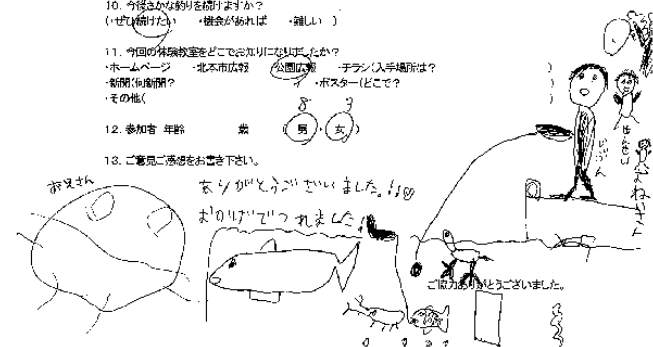 10. 今後さかな釣りを続けますか?
(・ぜひ続けたい ・機会があれば ・難しい )
11. 今回の体験教室をどこでお知りになりましたか?
・ホームページ ・北本市広報 ・公園広報 ・チラシ(入手場所は? )
・新聞(何新聞? ・ポスター(どこで? )
・その他( )
8 3
12. 参加者 年齢 歳 ( 男 ・ 女 )
13. ご意見ご感想をお書き下さい。
ありがとうございました。!!♡
おかげでつれました!
お兄さん
じぶん
おねいさん
ご協力ありがとうございました。